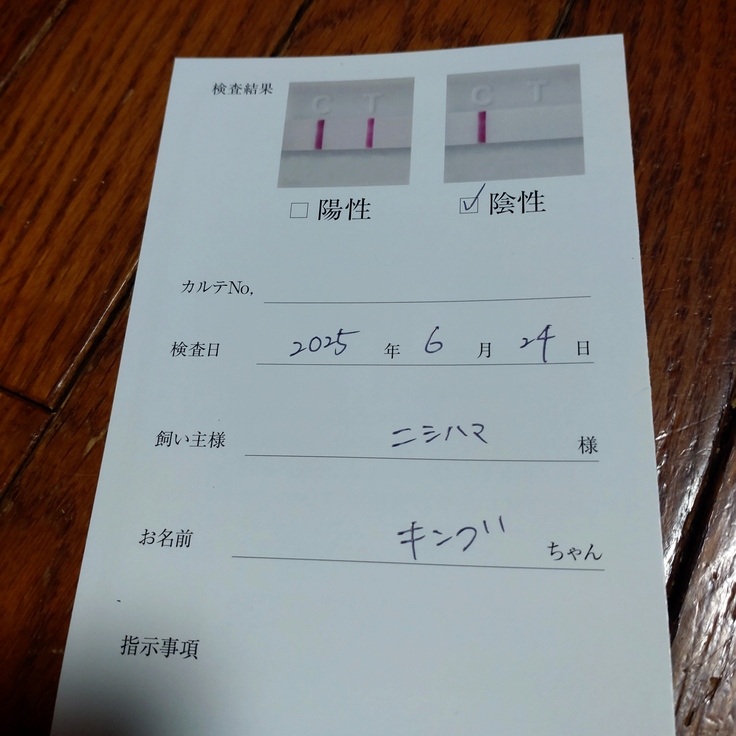 検査結果
C T
C T
□ 陽性
☑ 陰性
カルテNo,
検査日 2025 年 6 月 24 日
飼い主様 ニシハマ 様
お名前 キング ちゃん
指示事項